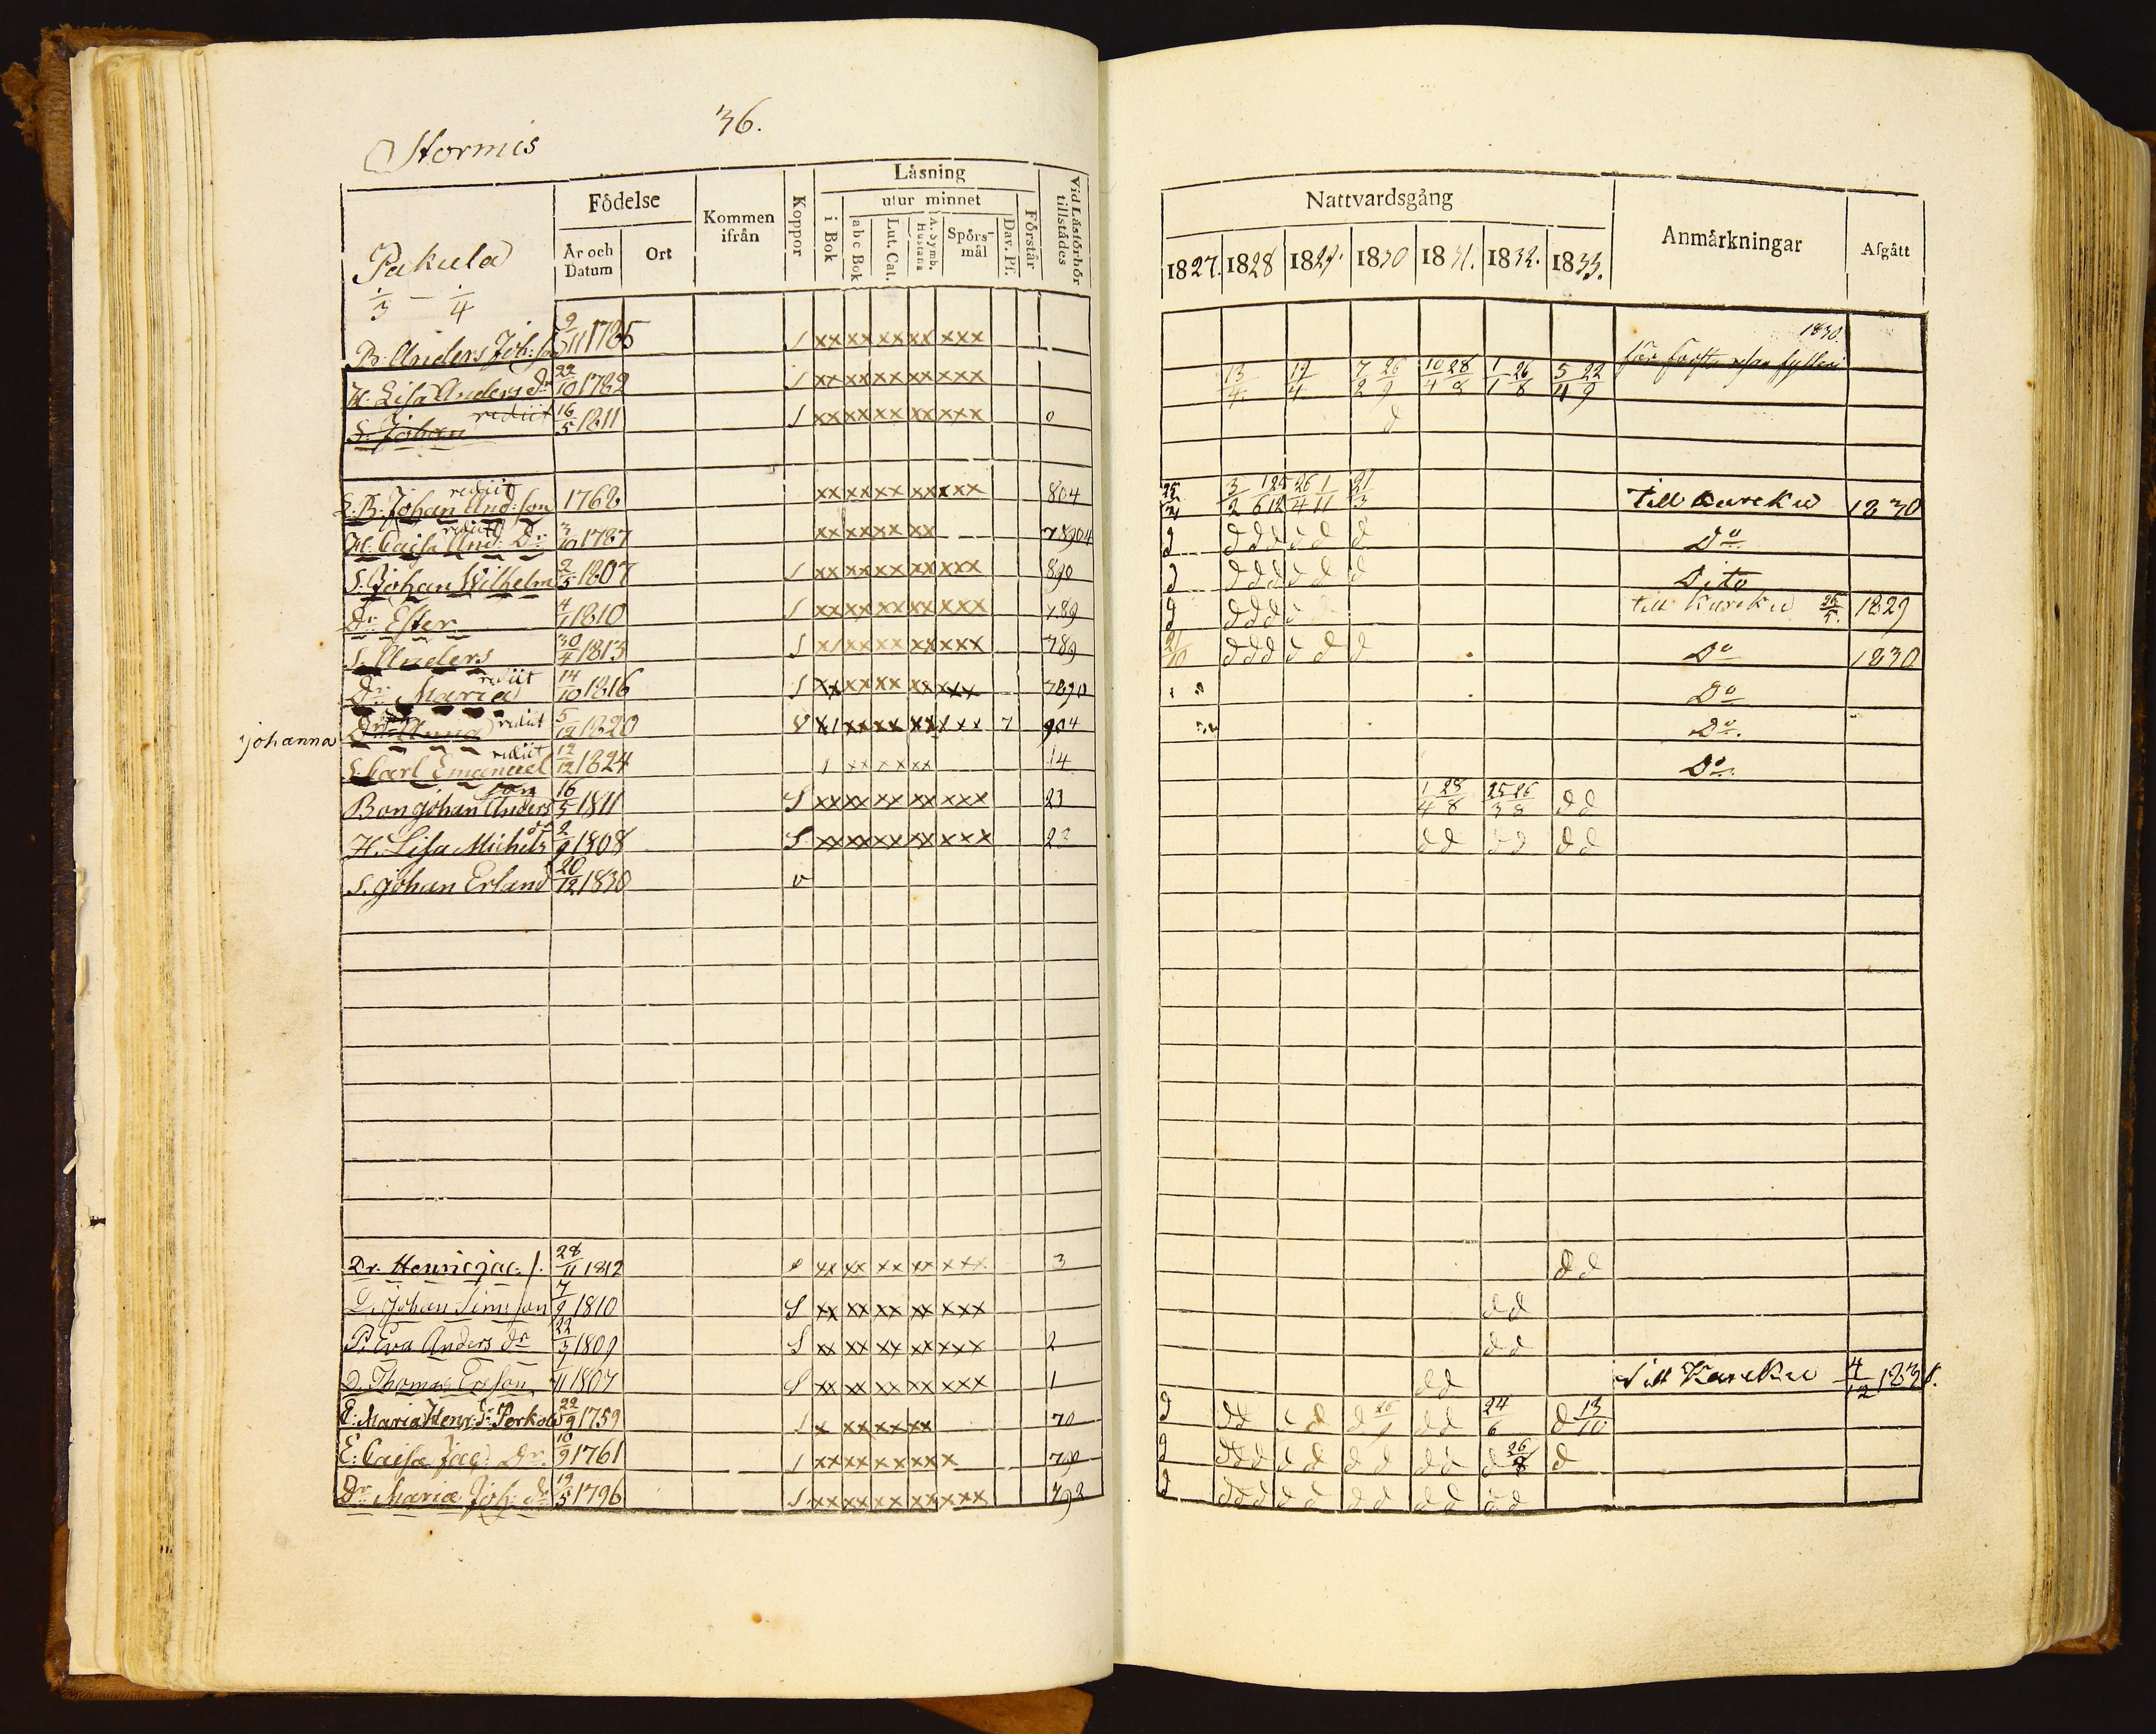 36.
Stormis
Födelse
Kommen ifrån
Koppor
Läsning
utur minnet
i Bok
abc Bok
Lut. Cat.
A. Symb. Hustafla
Spörsmål
Dav. Ps.
Förstår
Vid Läsförhör tillstädes
År och Datum
Ort
Pakula
1/3 — 1/4
B. Anders Joh:son 9/11 1785 S xx xx xx xx xxx
H. Lisa Anders dr 22/10 1782 S xx xx xx xx xxx
S. Johan rediit 16/5 1811 S xx xx xx xx xxx 0
S:B: Johan And:son rediit 1768 xx xx xx xx xxx 804
H. Caisa And: Dr rediit 3/10 1787 xx xx xx xx 78904
S. Johan Wilhelm 2/5 1807 S xx xx xx xx xxx 890
Dr Ester 1810 S xx xx xx xx xxx 789
S. Anders 30/4 1813 S xx xx xx xx xxx 789
Dr Maria rediit 14/10 1816 S xx xx xx xx xxx 7890
johanna Dr Anna rediit 5/12 1820 xx xx xx xxx 7 904
S. Carl Emanuel rediit 12/12 1824 14
Bon johan Anders son 16/5 1811 S xx xx xx xx xxx 23
H. Lisa Michels dr 2/9 1808 S xx xx xx xx xxx 23
S. johan Erland 20/12 1830 v
Dr. Henric jac: s. 28/11 1812 xx xx xx xx xxx 3
D. johan Sims son 7/9 1810 S xx xx xx xx xxx
P. Eva Anders dr 22/3 1809 S xx xx xx xx xxx 2
D. Thomas Ersson 1807 S xx xx xx xx xxx 1
E: Maria Henr: dr Perkola 22/9 1759 S x xx xx xx 70
E: Caisa Jac: Dr. 10/9 1761 S xx xx xx xx x 790
Dr Maria Joh: dr 19/5 1796 S xx xx xx xx xxx 792
Nattvardsgång
Anmärkningar
Afgått
1827. 1828 1829. 1830 1831. 1832. 1833.
1830.
för första resan fylleri
13/4 12/4 7/2 26/9 10/4 28/8 1/1 26/8 5/4 22/9
d
Till Kareku 1830
d ddd d d d Do
d ddd d d d Dito
d ddd d till Kareku 26/5. 1829
21/10 ddd d d d Do 1830
Do
Do.
Do.
1/4 28/8 25/3 26/8 d d
d d d d d d
d d
d d
d d
d d Till Kareku 4/12 1831.
d dd d d d d d 24/6 d 13/10
d ddd d d d d d d d 26/8 d
d ddd d d d d d d d d